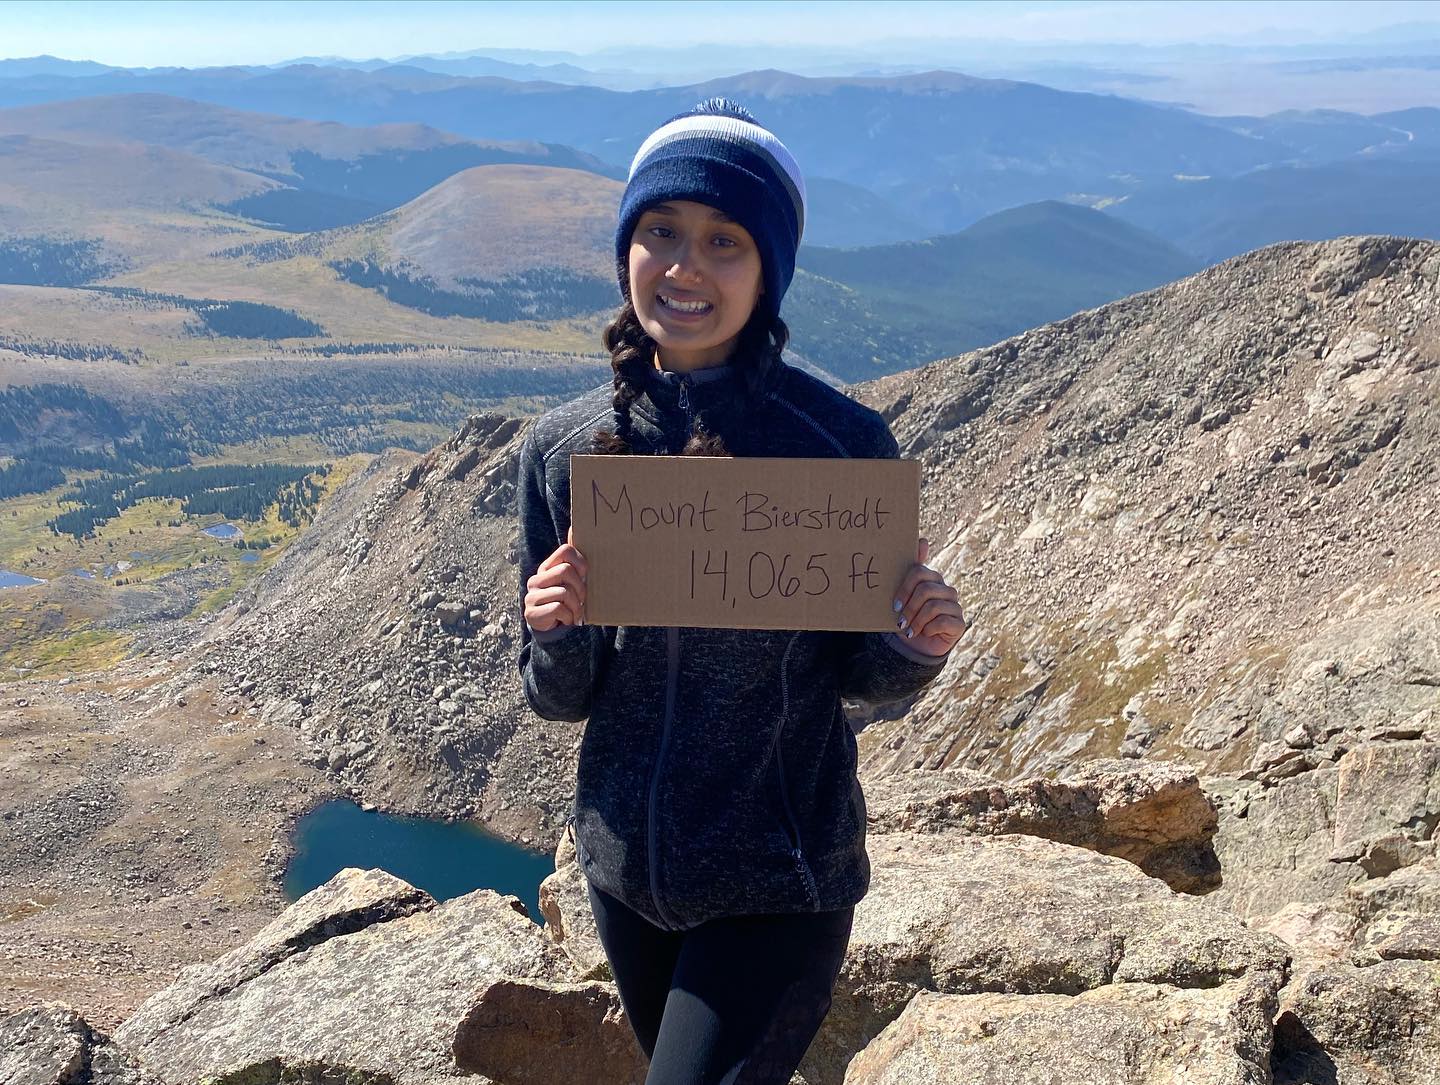 Mount Bierstadt
14,065 ft